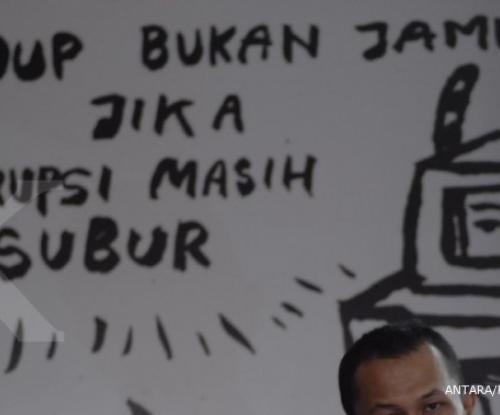 DUP BUKAN JAMI
JIKA
RUPSI MASIH
SUBUR
ANTARA/